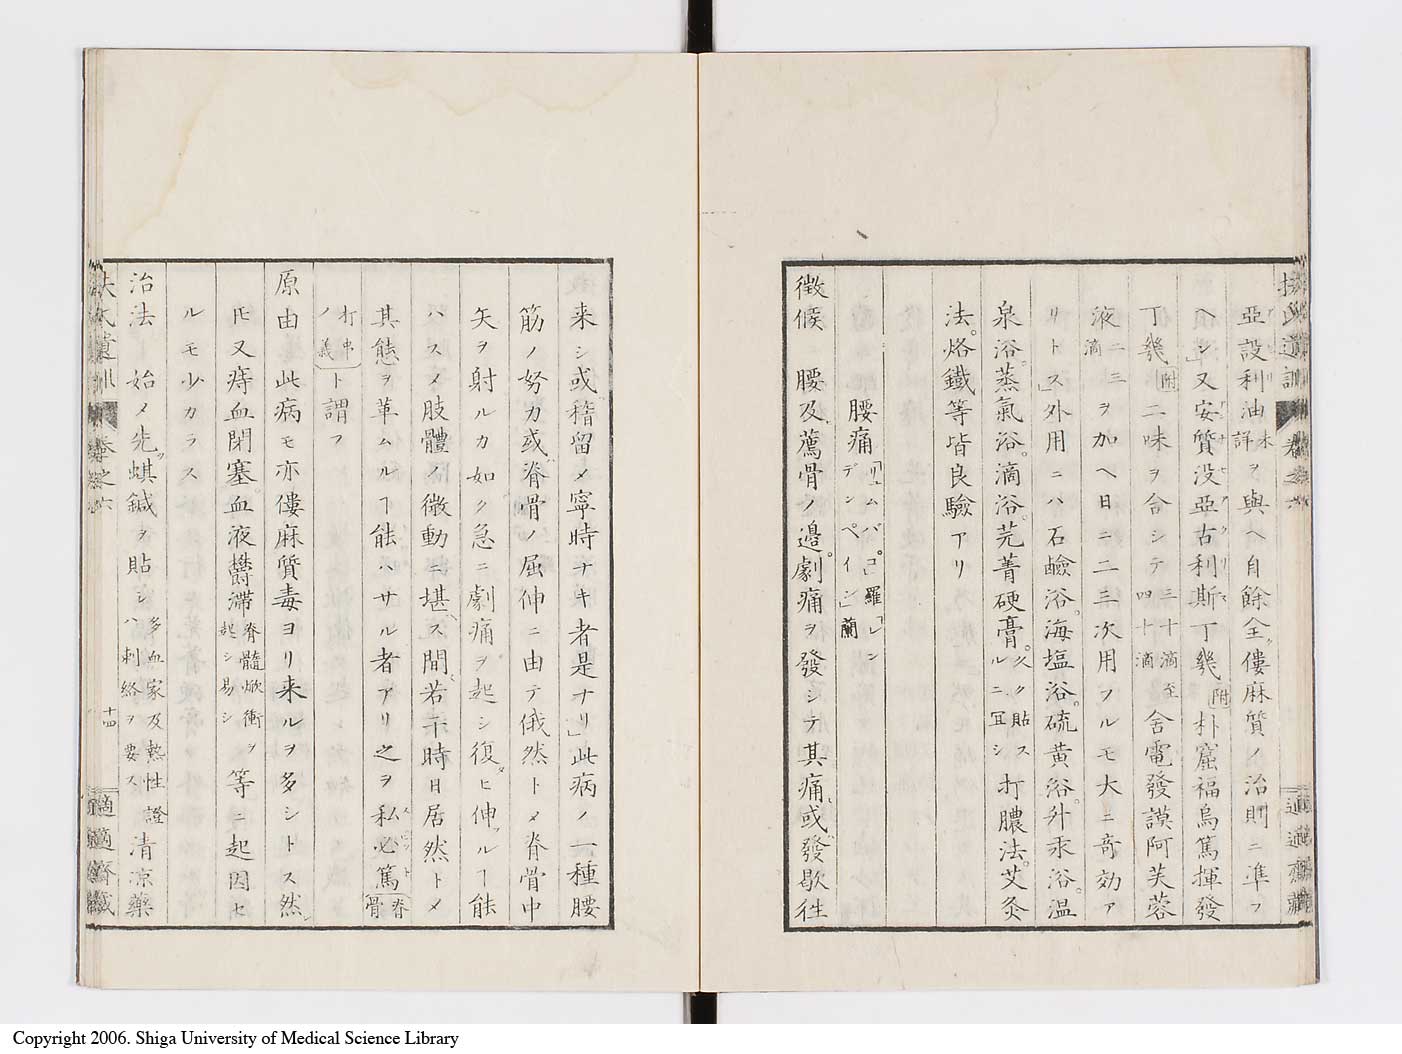 扶氏遺訓 卷之六 適適齋藏
亞設利油詳末ヲ與ヘ自餘全ク僂麻質ノ治則ニ準フ
ヘシ」又安質没亞古利斯丁幾附朴窟福烏篤揮發
丁幾附二味ヲ合シテ三十滴至四十滴舍電發謨阿芙蓉
液二三滴ヲ加ヘ日ニ二三次用フルモ大ニ奇効ア
リトス」外用ニハ石鹼浴。海塩浴。硫黄浴。外汞浴。温
泉浴。蒸氣浴。滴浴。芫菁硬膏。久ク貼スルニ宜シ打膿法。艾灸
法。烙鐵等皆良驗アリ
腰痛「リュムバゴ」羅「レンデンペイン」蘭
徴候 腰及薦骨ノ邉。劇痛ヲ發シテ其痛或ハ發歇徃
来シ或ハ稽留メ寧時ナキ者是ナリ」此病ノ一種腰
筋ノ努力或ハ脊骨ノ屈伸ニ由テ俄然トメ脊骨中
矢ヲ射ルカ如ク急ニ劇痛ヲ起シ復タヒ伸フルヿ能
ハスメ肢體ノ微動ニ堪ヘス間若干時日居然トメ
其態ヲ革ムルヿ能ハサル者アリ之ヲ私必篤脊骨
打串ノ義ト謂フ
原由 此病モ亦僂麻質毒ヨリ来ルヲ多シトス然
𪜈又痔血閉塞。血液欝滯脊髓焮衝ヲ起シ易シ等ニ起因セ
ルモ少カラス
治法 始メ先ツ蜞鍼ヲ貼シ多血家及熱性證ハ刺絡ヲ要ス清凉藥
扶氏遺訓 卷之六 十四 適適齋藏
Copyright 2006. Shiga University of Medical Science Library